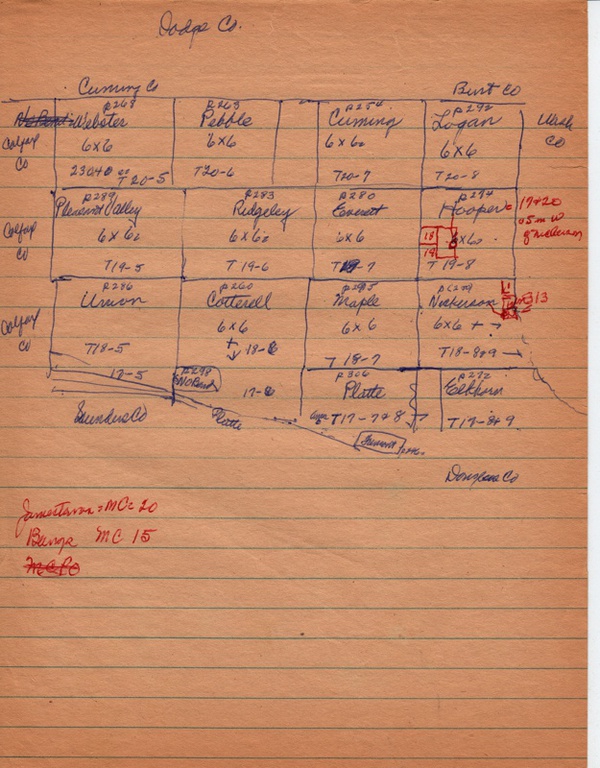 Dodge Co.
Cuming Co
Burt Co
Colfax Co
Webster
6x6
23040
T20-5
p263
Pebble
6x6
T20-6
p254
Cuming
6x6
T20-7
Logan
6x6
T20-8
Wash Co
Colfax Co
Pleasant Valley
6x6
T19-5
p283
Ridgeley
6x6
T19-6
p280
Everett
6x6
T19-7
p274
Hooper
6x6
T19-8
18
19
17+20
.5 m W
of Nickerson
Colfax Co
p286
Union
T18-5
17-5
p260
Cotterell
6x6
18-6
p298
No Bend
17-6
Maple
6x6
T18-7
Nickerson
6x6 +
T18-8&9
13
p306
Platte
T17-7&8
p272
Elkhorn
T17-8&9
Saunders Co
Platte
Fremont
Douglas Co
Jamestown = MC = 20
Bunga MC 15
MC PO